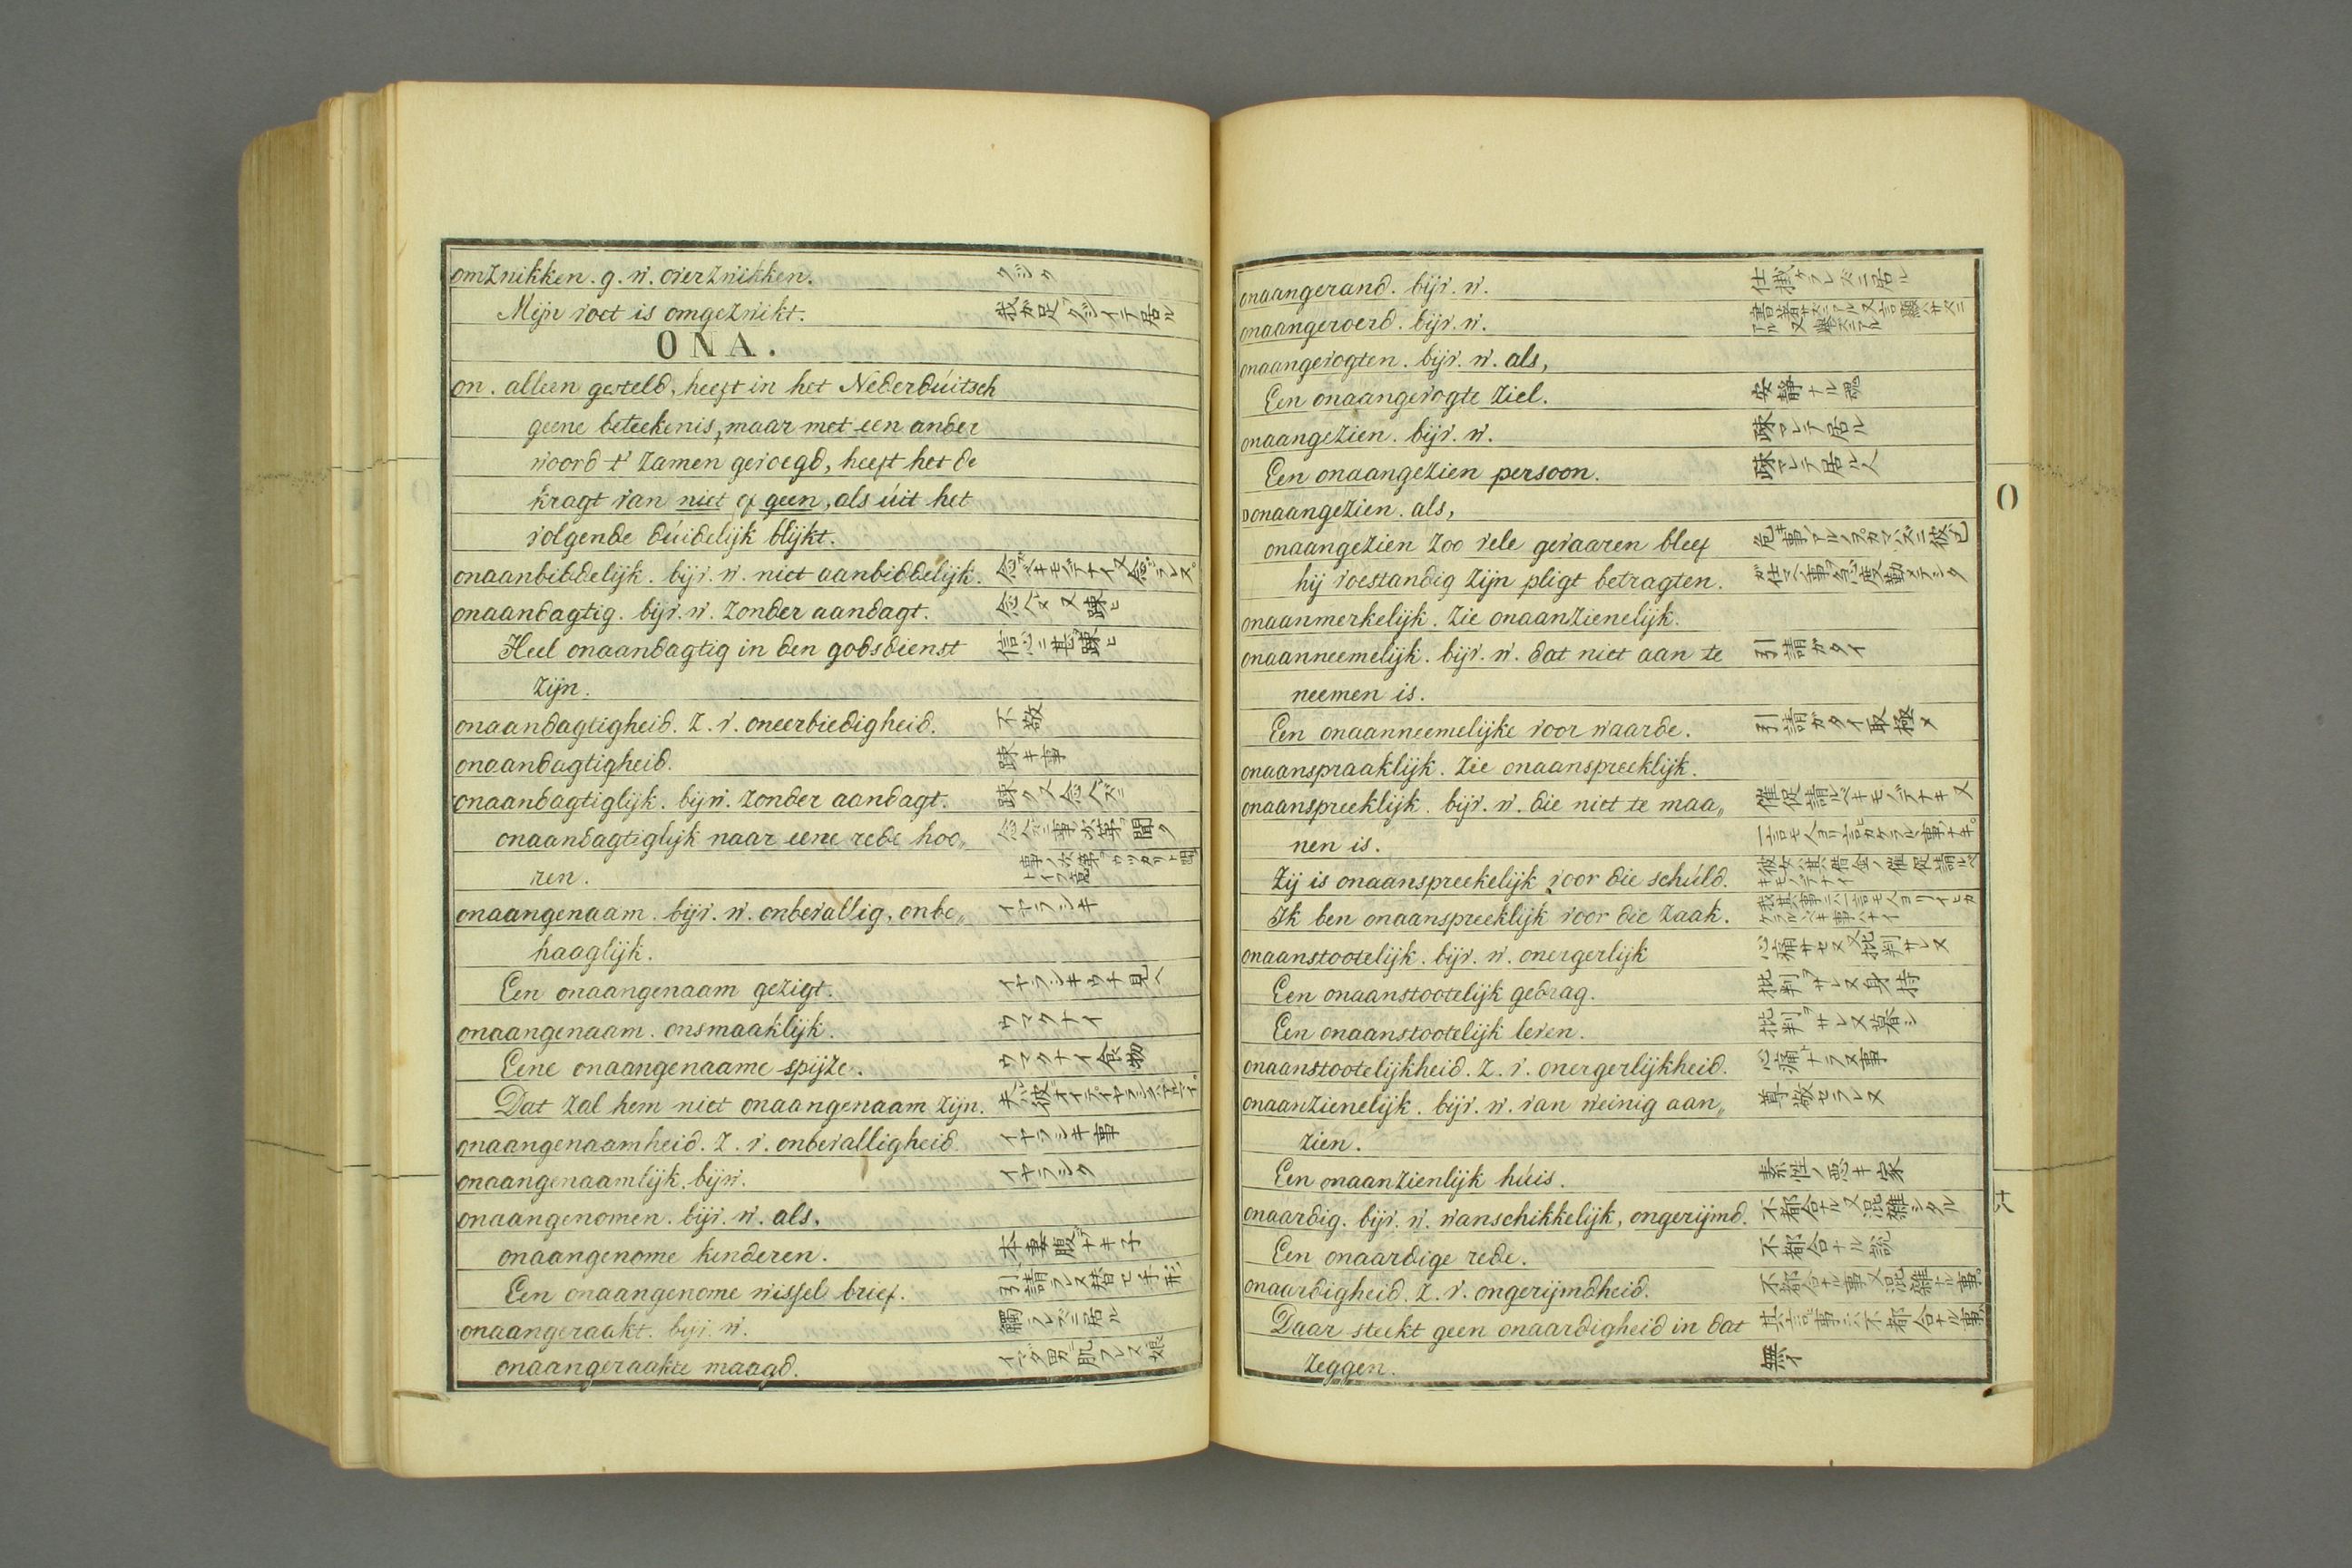 omzwikken. g. w. overzwikken. クジク
Mijn voet is omgezwikt. 我ガ足ヲクジイテ居ル
ONA.
on. alleen gesteld, heeft in het Nederdúitsch
geene beteekenis, maar met een ander
woord t' zamen gevoegd, heeft het de
kragt van niet of geen, als úit het
volgende dúidelijk blijkt.
onaanbiddelijk. bijv. w. niet aanbiddelijk.
onaandagtig. bijv. w. zonder aandagt.
Heel onaandagtig in den godsdienst 信心ニ甚踈ヒ
zijn.
onaandagtigheid. z. v. oneerbiedigheid. 不敬
onaandagtigheid. 踈キ事
onaandagtiglijk. bijw. zonder aandagt.
onaandagtiglijk naar eene rede hoo„
ren.
onaangenaam. bijv. w. onbevallig, onbe„ イヤラシキ
haaglijk.
Een onaangenaam gezigt. イヤラシキウナ見ヘ
onaangenaam. onsmaaklijk. ウマクナイ
Eene onaangenaame spijze. ウマクナイ食物
Dat zal hem niet onaangenaam zijn.
onaangenaamheid. z. v. onbevalligheid. イヤラシキ事
onaangenaamlijk. bijw. イヤラシク
onaangenomen. bijv. w. als,
onaangenome kenderen.
Een onaangenome wissel brief.
onaangeraakt. bijv. w.觸レズニ居ル
onaangeraakte maagd.
onaangerand. bijv. w.
onaangeroerd. bijv. w.
onaangevogten. bijv. w. als,
Een onaangevogte ziel. 安静ナル魂
onaangezien. bijv. w. 踈マレテ居ル
Een onaangezien persoon. 踈マレテ居ル人
onaangezien. als,
onaangezien zoo vele gevaaren bleef
hij voestandig zijn pligt betragten.
onaanmerkelijk. zie onaanzienelijk.
onaanneemelijk. bijv. w. dat niet aan te 引請ガタイ
neemen is.
Een onaanneemelijke voor waarde. 引請ガタイ取極メ
onaanspraaklijk. zie onaanspreeklijk.
onaanspreeklijk. bijv. w. die niet te maa„
nen is.
Zij is onaanspreekelijk voor die schúld.
Ik ben onaanspreeklijk voor die zaak.
onaanstootelijk. bijv. w. onergerlijk
Een onaanstootelijk gedrag. 批判サレヌ身持
Een onaanstootelijk leven. 批判サレヌ暮シ
onaanstootelijkheid. z. v. onergerlijkheid. 心痛ナラヌ事
onaanzienelijk. bijv. w. van weinig aan„ 尊敬セラレヌ
zien.
Een onaanzienlijk húis. 素性ノ悪キ家
onaardig. bijv. w. wanschikkelijk, ongerijmd. 不都合ナル又混雑シタル
Een onaardige rede. 不都合ナル説
onaardigheid. z. v. ongerijmdheid. 不都合ナル事又混雑ナル事。
Daar steekt geen onaardigheid in dat
zeggen. 無イ
O
六